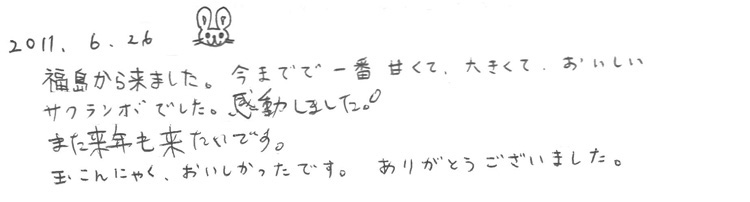 2011. 6. 26
福島から来ました。今までで一番甘くて、大きくて、おいしい
サクランボでした。感動しました。
また来年も来たいです。
玉こんにゃく、おいしかったです。 ありがとうございました。